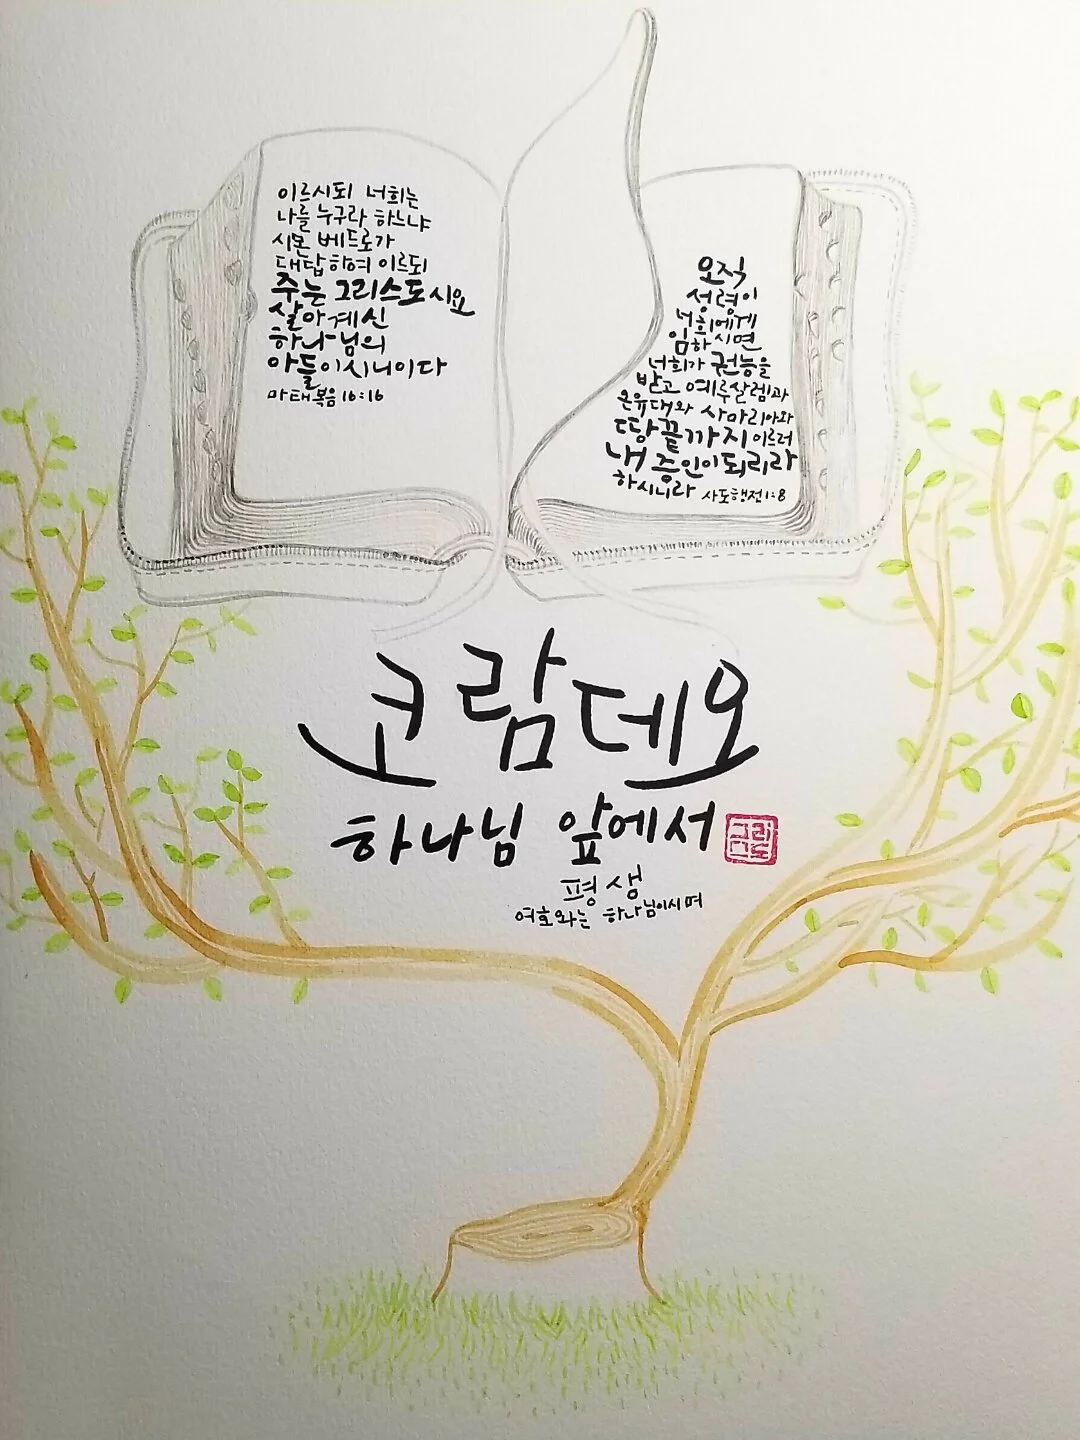 이르시되 너희는
나를 누구라 하느냐
시몬 베드로가
대답하여 이르되
주는 그리스도시요
살아계신
하나님의
아들이시니이다
마태복음 16:16
오직
성령이
너희에게
임하시면
너희가 권능을
받고 예루살렘과
온유대와 사마리아와
땅끝까지 이르러
내 증인이되리라
하시니라 사도행전 1:8
코람데오
하나님 앞에서
평생
여호와는 하나님이시며